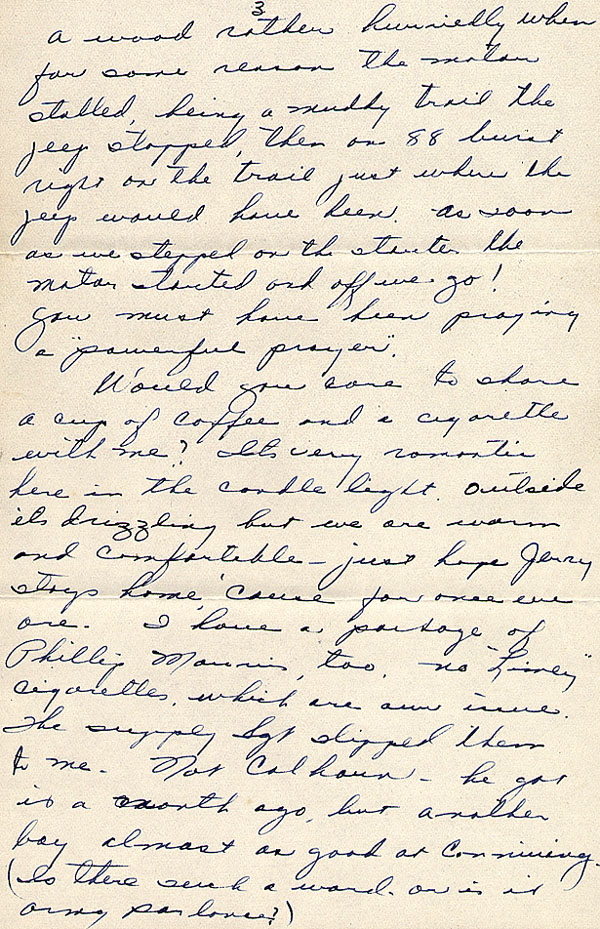 3
a wood rather hurriedly when
for some reason the motor
stalled, being a muddy trail the
jeep stopped, then an 88 burst
right on the trail just where the
jeep would have been. As soon
as we stepped on the starter the
motor started and off we go!
You must have been praying
a "powerful prayer".
Would you care to share
a cup of coffee and a cigarette
with me? Its very romantic
here in the candle light. Outside
its drizzling but we are warm
and comfortable - just hope Jerry
stays home, 'cause for once we
are. I have a package of
Phillip Morris, too, no "Limey"
cigarettes, which are our issue.
The supply Sgt slipped them
to me. Not Calhoun - he got
it a month ago, but another
boy almost as good at conniving.
(Is there such a word or is it
army parlance?)